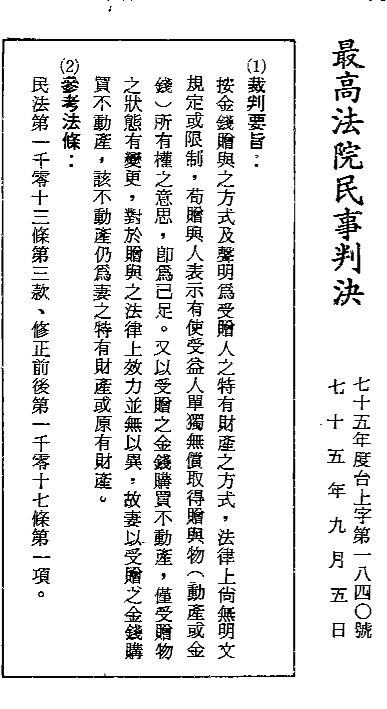 最高法院民事判決
七十五年度台上字第一八四〇號
七十五年九月五日
(1)裁判要旨：
按金錢贈與之方式及聲明爲受贈人之特有財產之方式，法律上尙無明文
規定或限制，苟贈與人表示有使受益人單獨無償取得贈與物（動產或金
錢）所有權之意思，卽爲已足。又以受贈之金錢購買不動產，僅受贈物
之狀態有變更，對於贈與之法律上效力並無以異，故妻以受贈之金錢購
買不動產，該不動產仍爲妻之特有財產或原有財產。
(2)參考法條：
民法第一千零十三條第三款、修正前後第一千零十七條第一項。